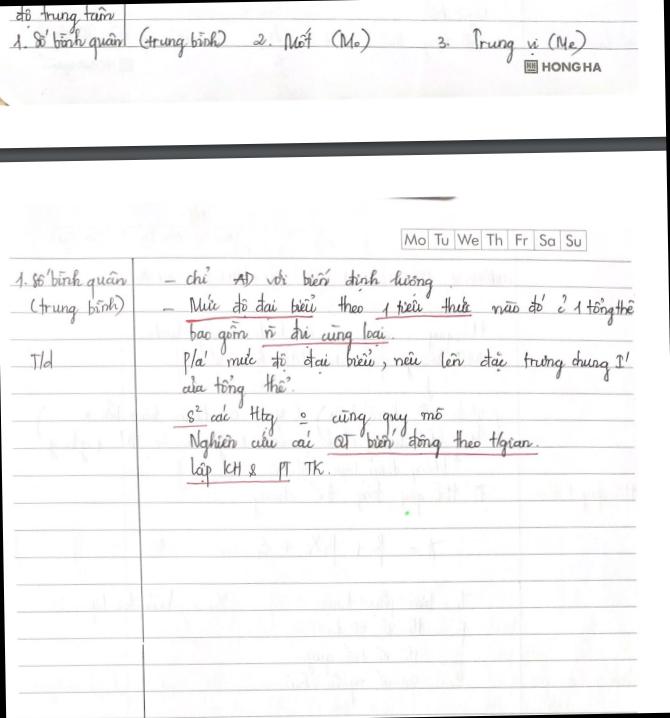 độ trung tâm
1. Số bình quân (trung bình) 2. Mốt (Mo) 3. Trung vị (Me)
HONG HA
Mo Tu We Th Fr Sa Su
1. Số bình quân – chỉ AD với biến định lượng.
(trung bình) – Mức độ đại biểu theo 1 tiêu thức nào đó ở 1 tổng thể
bao gồm n̄ đvị cùng loại.
T/d P/á mức độ đại biểu, nêu lên đặc trưng chung I'
của tổng thể.
S² các Htg o cùng quy mô
Nghiên cứu các QT biến động theo t/gian.
lập KH & PT TK.